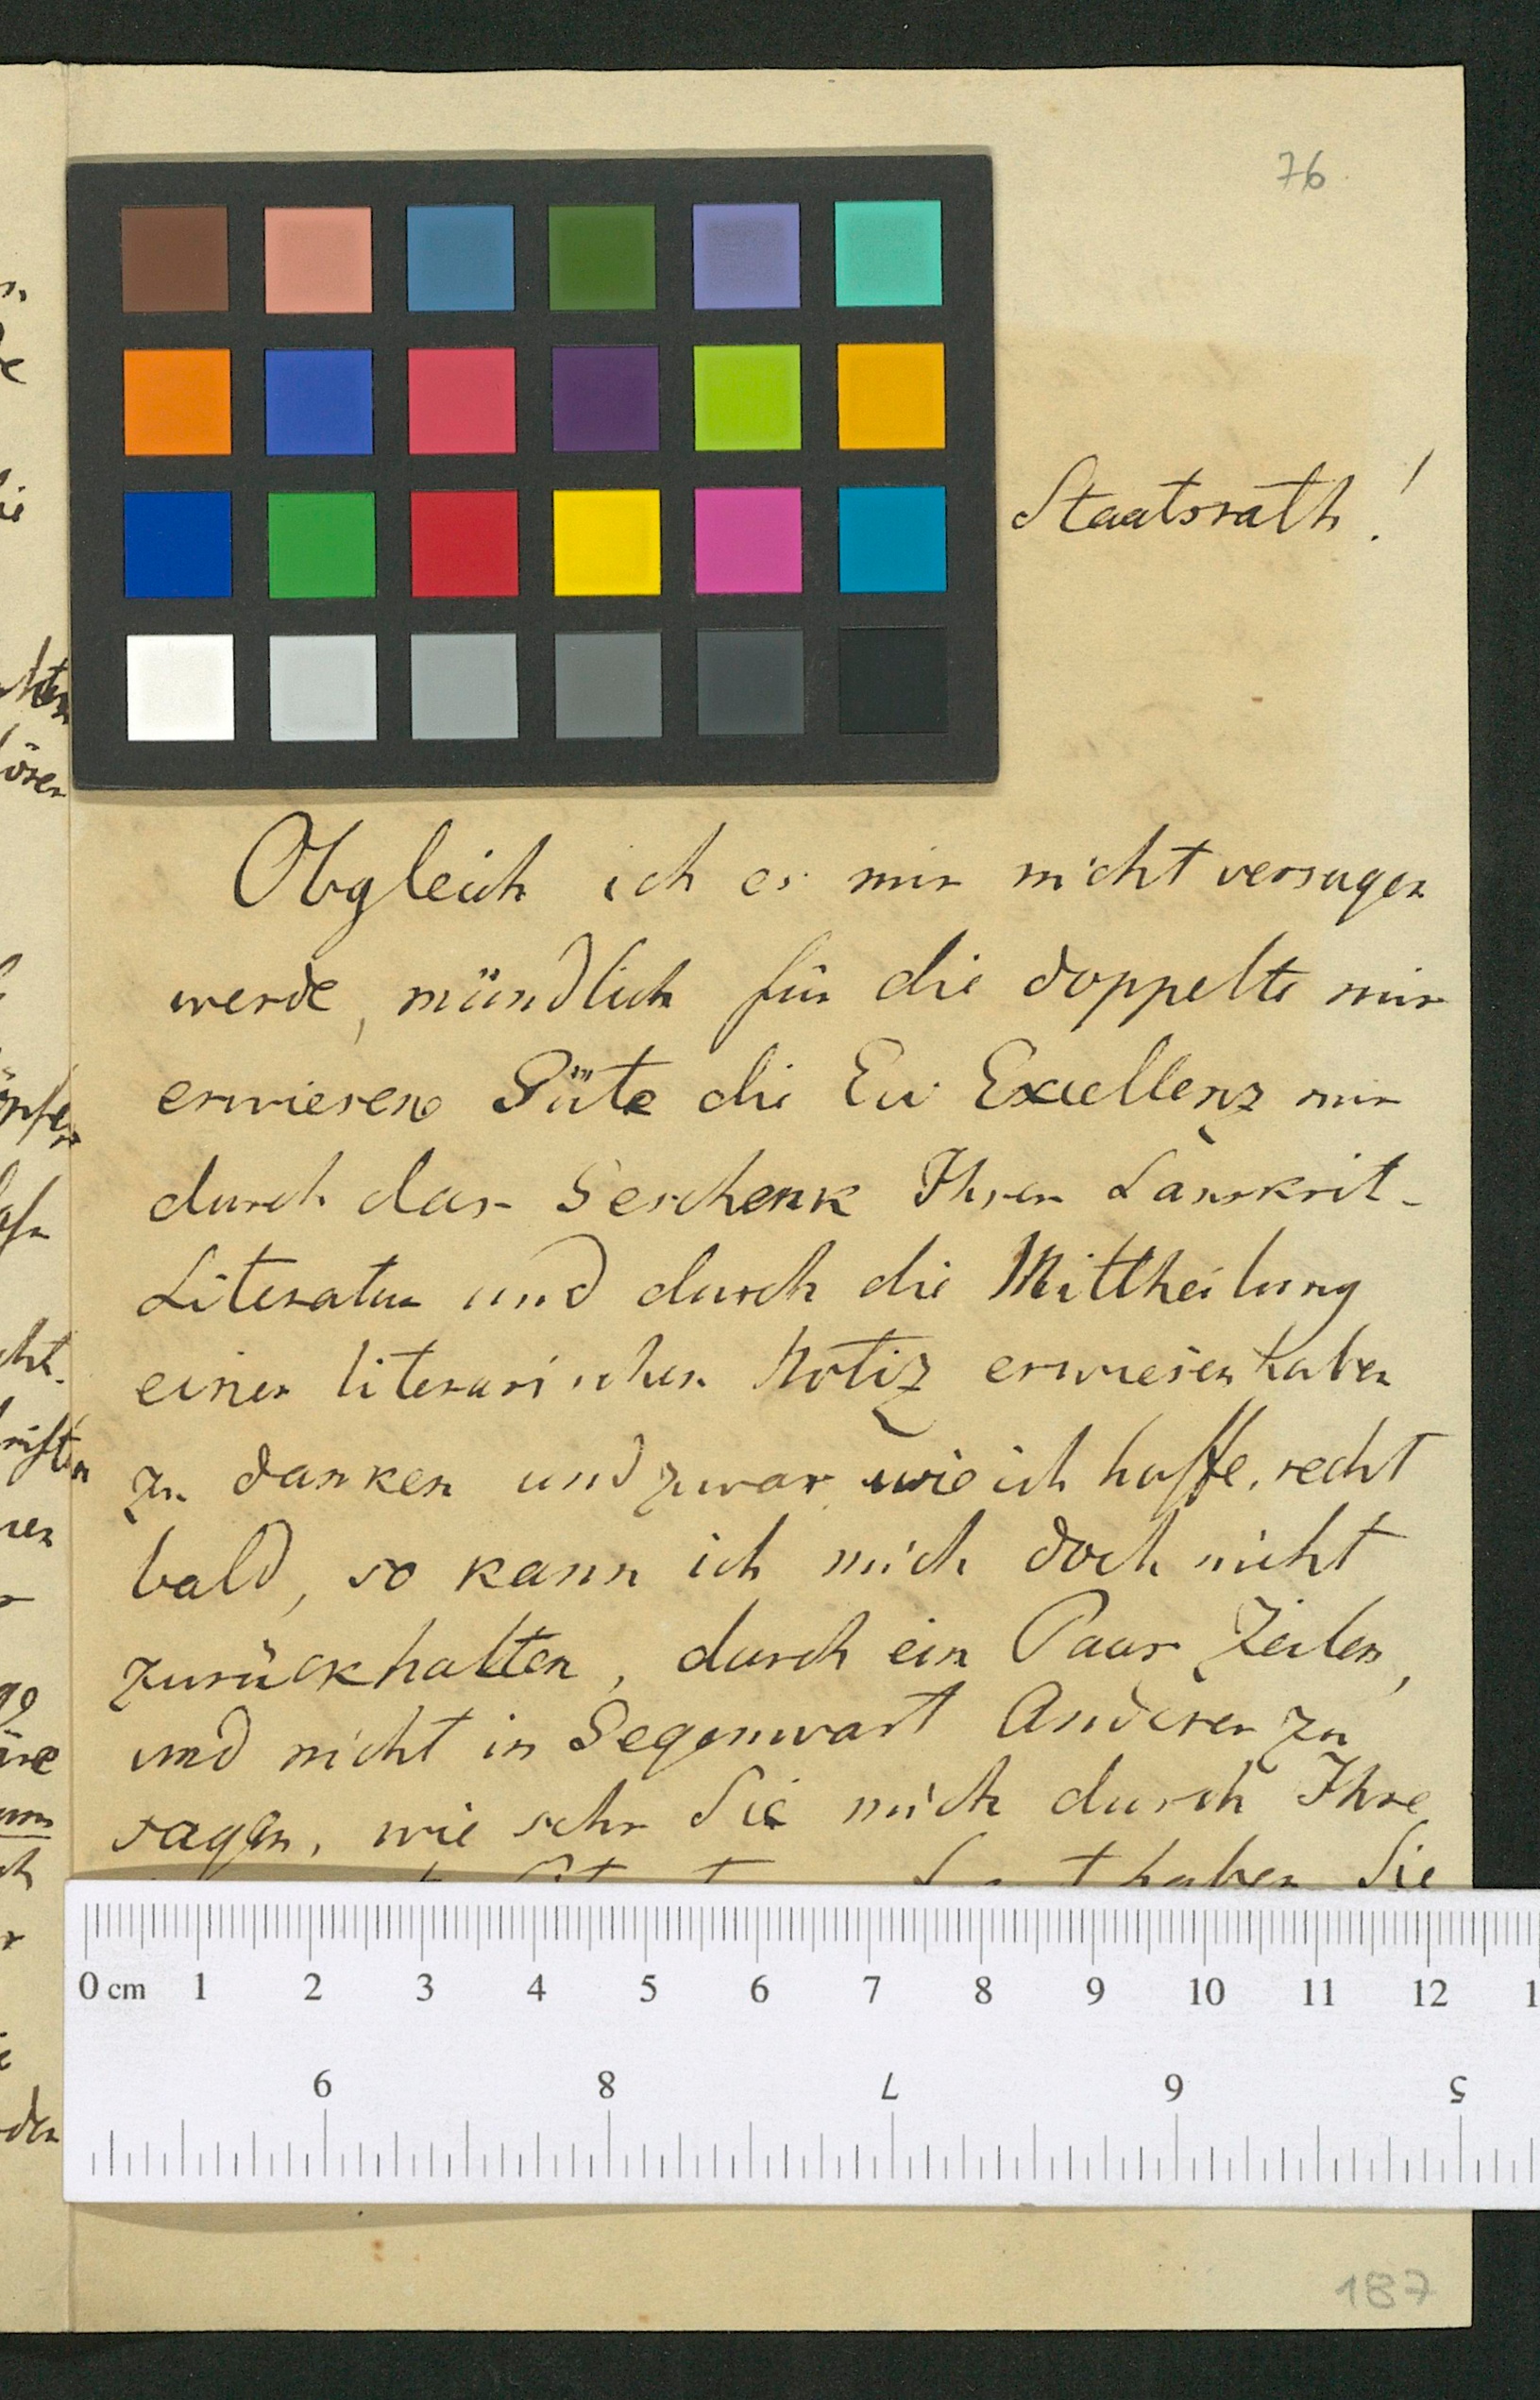 76
Staatsrath!
Obgleich ich es mir nicht versagen
werde, mündlich für die doppelte mir
erwiesene Güte die Ew Excellenz mir
durch das Geschenk Ihrer Sanskrit-
Literatur und durch die Mittheilung
einer literarischen Notiz erwiesen haben
zu danken und zwar, wie ich hoffe, recht
bald, so kann ich mich doch nicht
zurückhalten, durch ein Paar Zeilen,
und nicht in Gegenwart Anderer zu
sagen, wie sehr Sie mich durch Ihre
haben Sie
0 cm 1 2 3 4 5 6 7 8 9 10 11 12 1
9 8 7 6 5
187